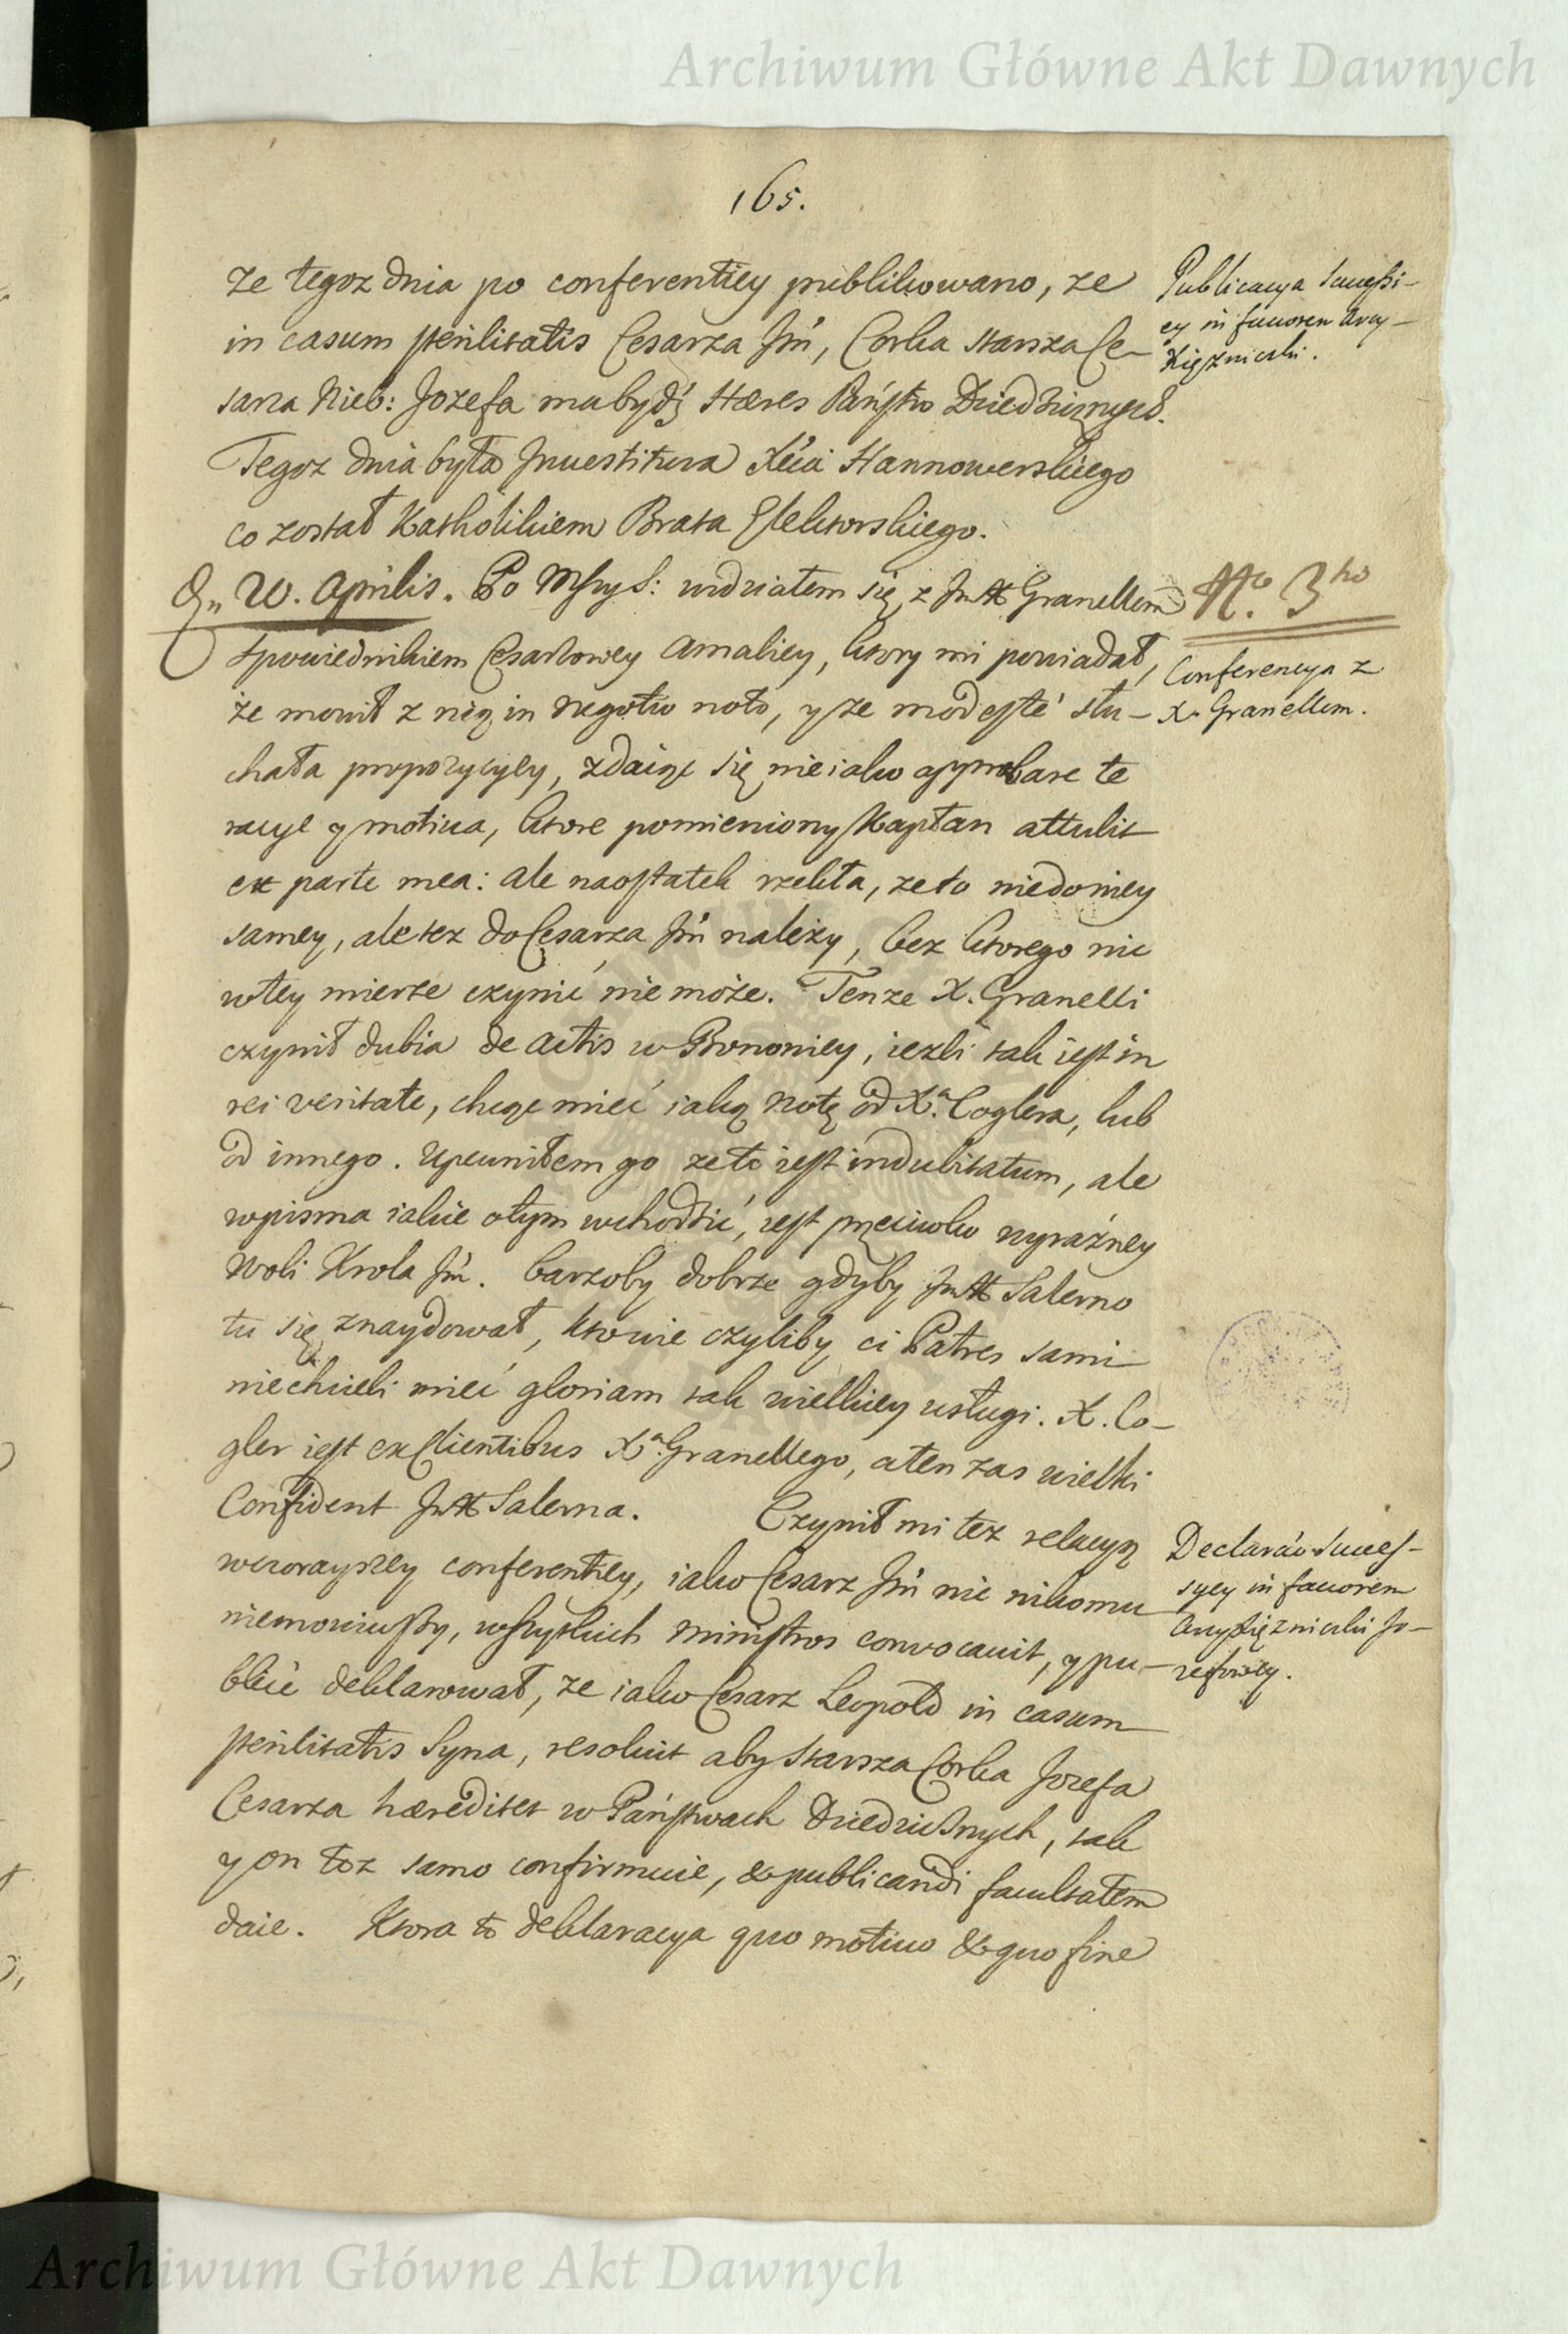 Archiwum Główne Akt Dawnych
165.
ze tegoz dnia po conferentiey publikowano, ze
in casum sterilitatis Cesarza Jm̃, Corka starsza Ce-
sarza Nieb: Jozefa ma bydź Hæres Państw Dziedzicznych.
Tegoz dnia była Inuestitura Xcia Hannowerskiego
co został Katholikiem Brata Elektorskiego.
Publicacya Sucessi-
ey in fauorem Arcy-
xiężniczki.
D„ 20. Aprilis. Po Mszy S: widziałem się z JmX Granellem
Spowiednikiem Cesarzowey Amaliey, ktory mi powiadał,
że mowił z nią in negotio noto, y ze modestè słu-
chała propozycyey, zdaiąc się nieiako approbare te
racye y motiua, ktore pomieniony Kapłan attulit
ex parte mea: ale naostatek rzekła, ze to nie do niey
samey, ale tez do Cesarza Jm̃ należy, bez ktorego nic
w tey mierze czynić nie może. Tenze X. Granelli
czynił dubia de actis w Bononiey, iezli tak iest in
rei veritate, chcąc mieć iaką notę od Xa. Coglera, lub
od innego. Upewniłem go ze to iest indubitatum, ale
w pisma iakie o tym wchodzić, iest przeciwko wyraźney
woli Krola Jm̃. Barzoby dobrze gdyby JmX Salerno
tu się znaydował, kto wie czyliby ci Patres sami
nie chcieli mieć gloriam tak wielkiey usługi. X. Co-
gler iest ex Clientibus Xa. Granellego, a ten zas wielki
Confident JmX Salerna. Czynił mi tez relacyą
wczorayszey conferentiey, iako Cesarz Jm̃ nic nikomu
niemowiwszy, wszytkich Ministros convocauit, y pu-
blicè deklarował, ze iako Cesarz Leopold in casum
sterilitatis Syna, resoluit aby Starsza Corka Jozefa
Cesarza hæreditet w Państwach Dziedzicznych, tak
y on toz samo confirmuie, & publicandi facultatem
daie. Ktora to deklaracya quo motiuo & quo fine
No. 3tio
Conferencya z
X. Granellem.
Declarão Succes-
syey in fauorem
Arcyxiężniczki Jo-
zefowey.
Archiwum Główne Akt Dawnych